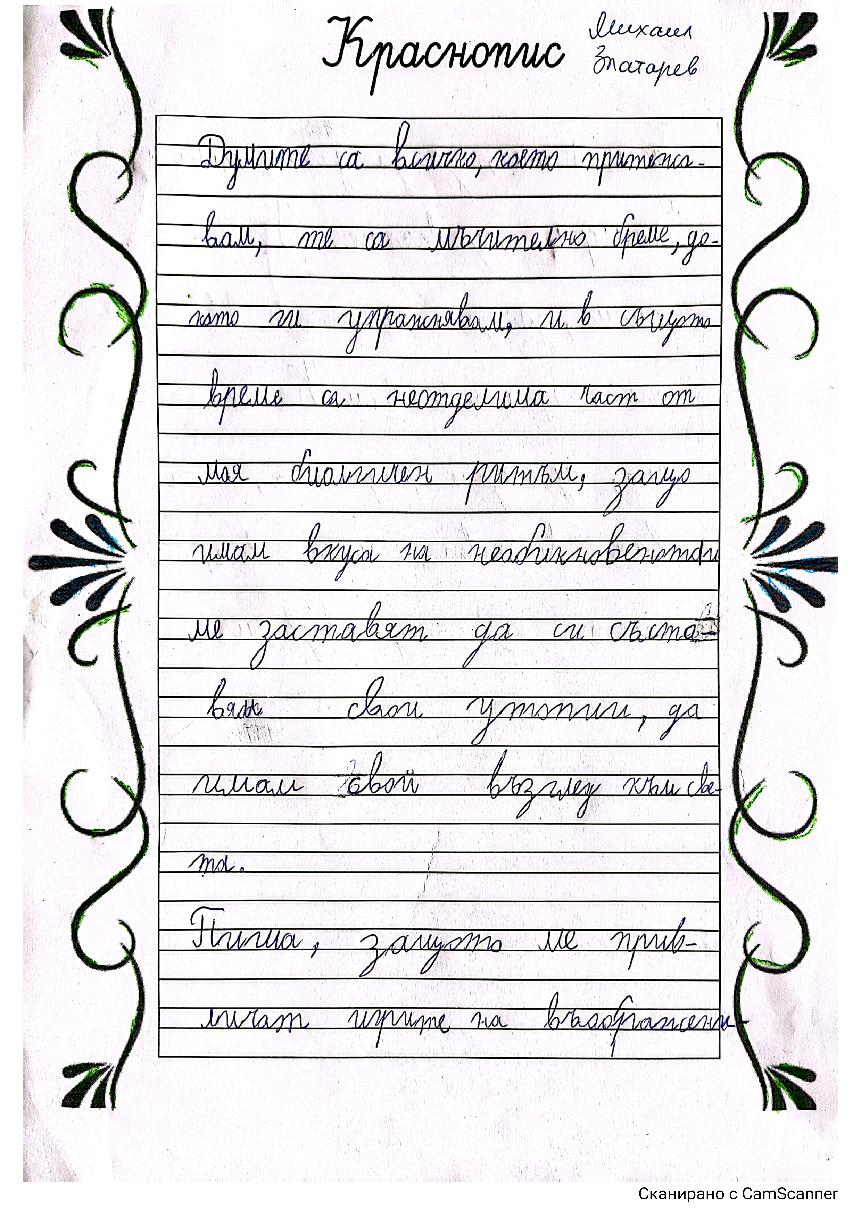 Краснопис
Михаил
Златарев
Думите са всичко, което притежа-
вам, те са мъчително бреме, до-
като ги упражнявам, и в същото
време са неотделима част от
мая биологичен ритъм, защо
имам вкуса на необикновеното
ме заставят да си съста-
вям свои утопии, да
имам свой възглед към све-
та.
Пиша, защото ме прив-
личат игрите на въображени-
Сканирано с CamScanner